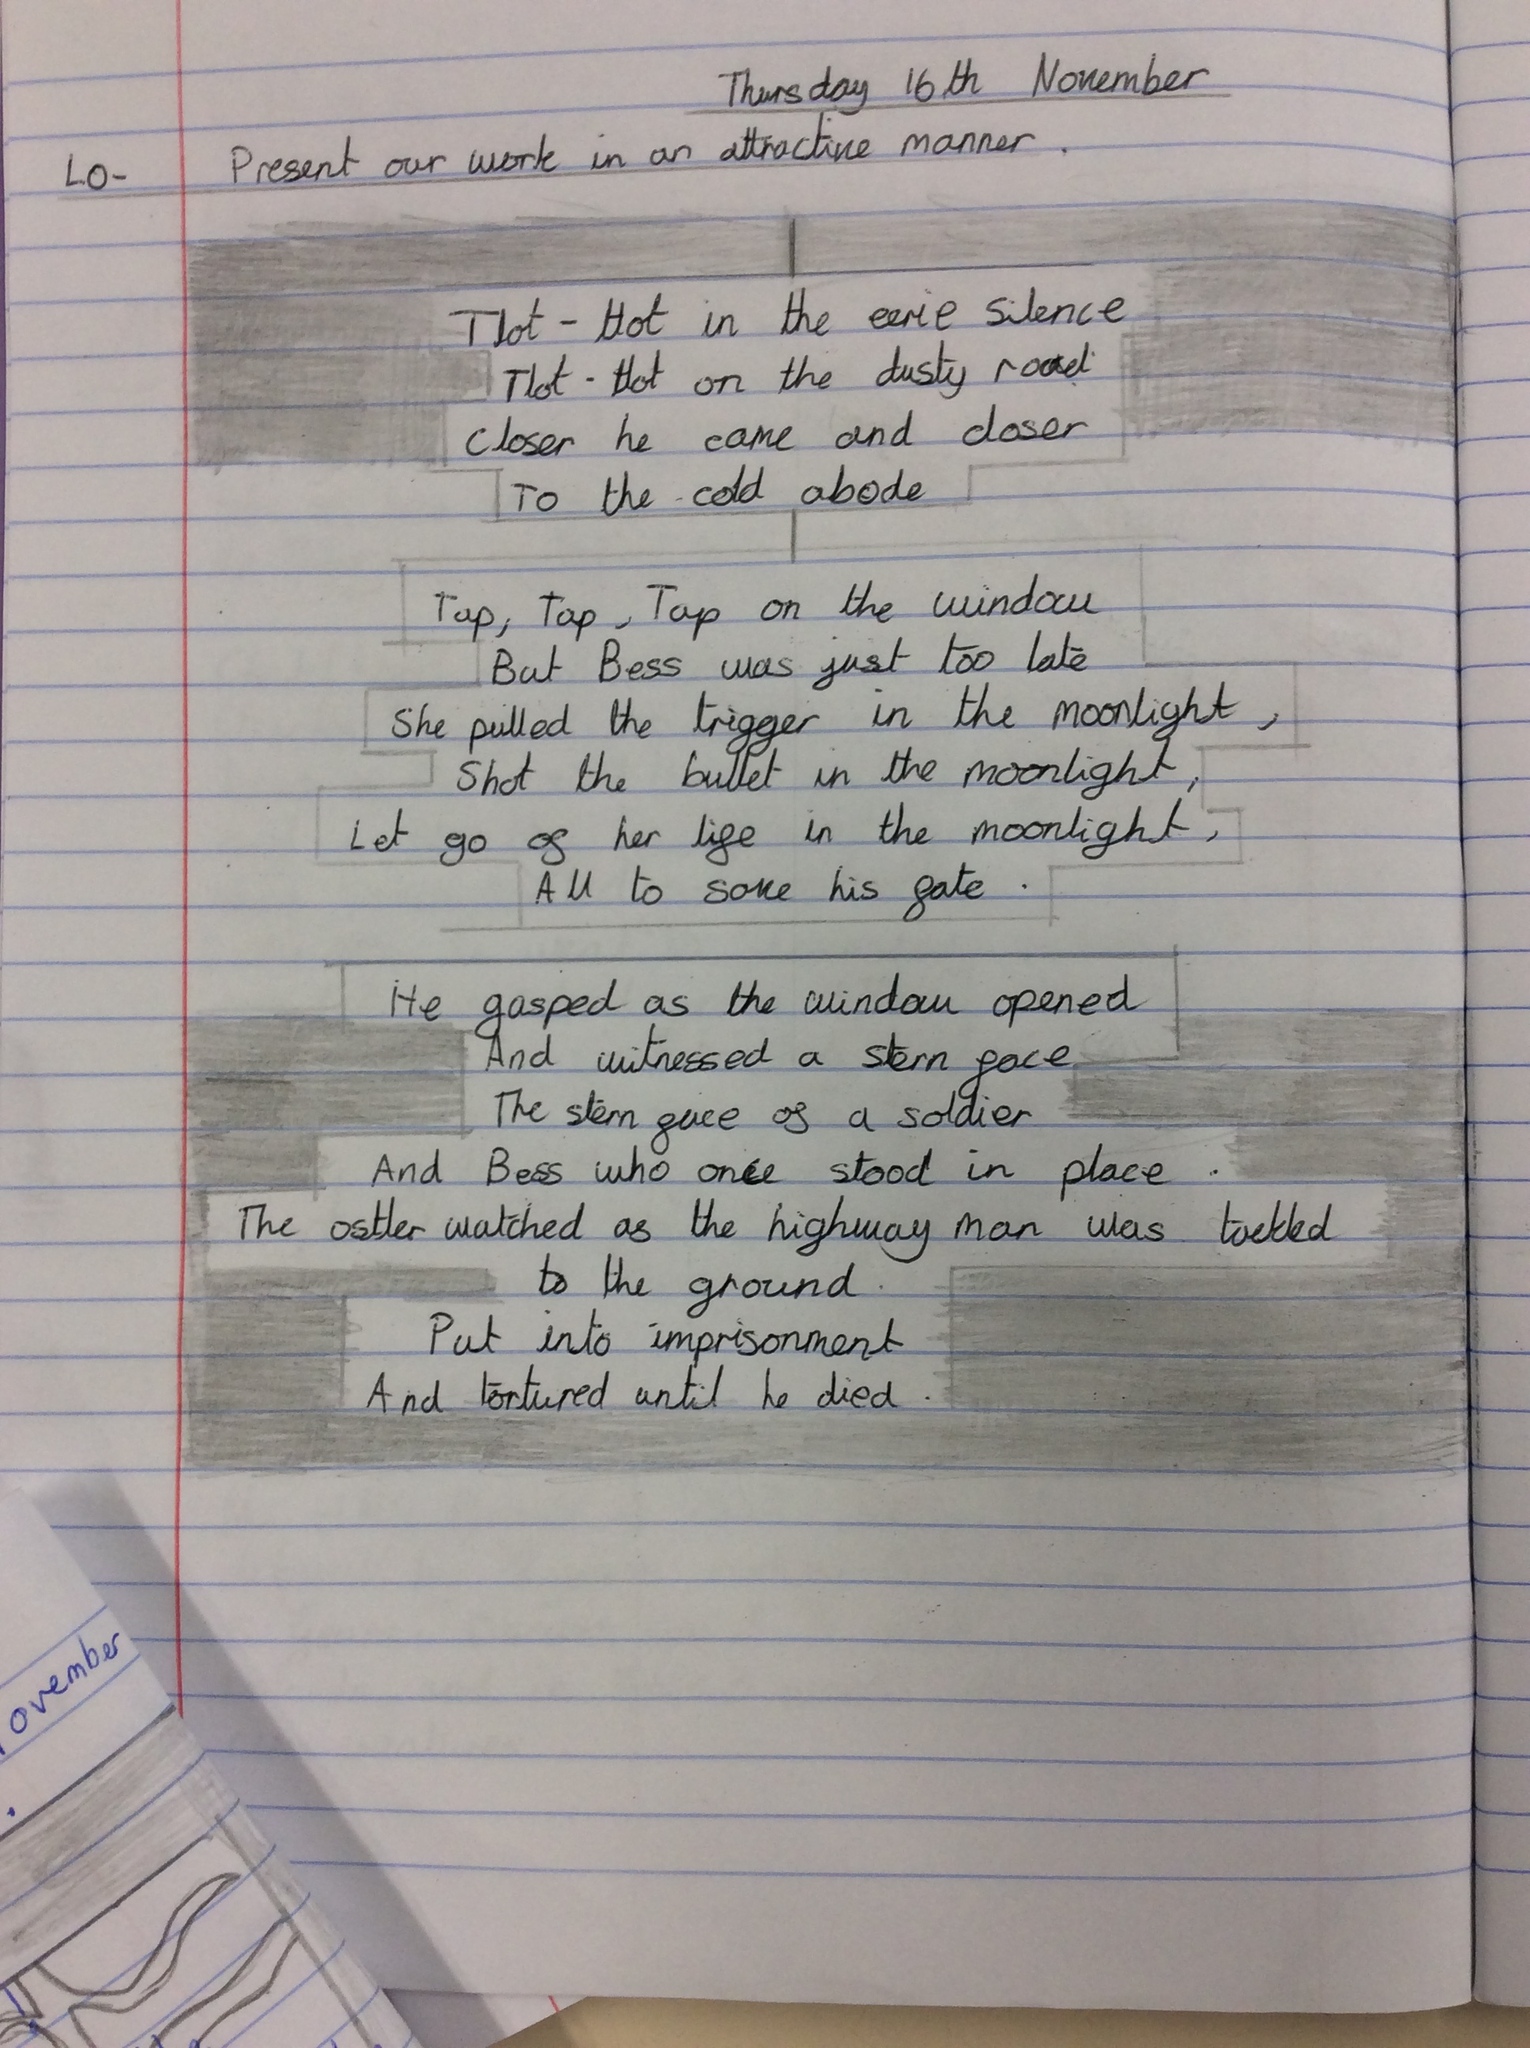 Thursday 16th November
LO- Present our work in an attractive manner.
Tlot-tlot in the eerie silence
Tlot-tlot on the dusty road
Closer he came and closer
To the cold abode
Tap, Tap, Tap on the window
But Bess was just too late
She pulled the trigger in the moonlight,
Shot the bullet in the moonlight,
Let go of her life in the moonlight,
All to save his fate.
He gasped as the window opened
And witnessed a stern face
The stern face of a soldier
And Bess who once stood in place.
The ostler watched as the highway man was tackled
to the ground.
Put into imprisonment
And tortured until he died.
ovember